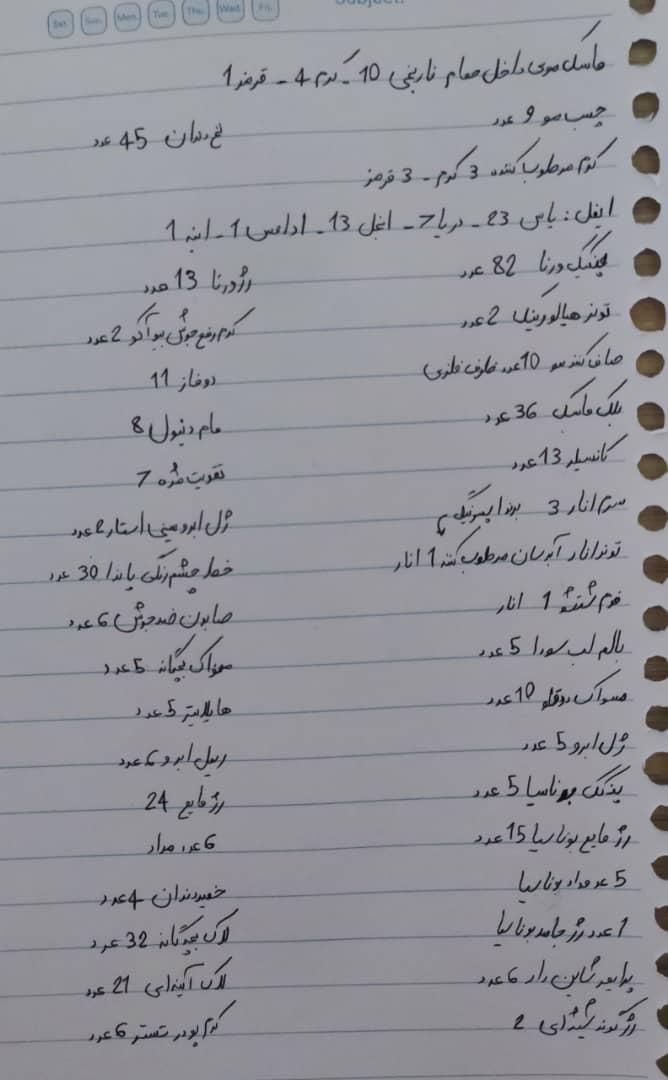 Subject:
Sat. Sun. Mon. Tue. Thu. Wed. Fri.
ماسک موی داخل حمام نارنجی 10 - کرم 4 - قرمز 1
چسب مو 9 عدد
نخ دندان 45 عدد
کرم مرطوب کننده 3 کرم - 3 قرمز
ایفل : یاس 23 - دریا 7 - انجل 13 - ادامس 1 - انبه 1
پنکیک ورنا 82 عدد
رژ ورنا 13 عدد
تونر هیالورنیک 2 عدد
کرم رفع جوش بیوآکو 2 عدد
صاف کننده مو 10 عدد ظرف فلزی
دوفاز 11
بلک ماسک 36 عدد
مام 8
کانسیلر 13 عدد
تقویت مژه 7
سرم انار 3 برند
ژل ابرو مینی استار 2 عدد
تونر انار آبرسان مرطوب کننده 1 انار
خط چشم رنگی پاندا 30 عدد
فوم شستشو 1 انار
صابون ضد جوش 6 عدد
بالم لب سودا 5 عدد
مسواک بچگانه 5 عدد
مسواک دوقلو 10 عدد
هایلایتر 5 عدد
ژل ابرو 5 عدد
ریمل ابرو 6 عدد
پنکک بوناسیا 5 عدد
رژ مایع 24
رژ مایع بوناسیا 15 عدد
6 عدد مداد
5 عدد مداد بوناسیا
خمیردندان 4 عدد
1 عدد رژ جامد بوناسیا
لاک بچگانه 32 عدد
پرایمر شاین دار 6 عدد
لاک آینه‌ای 21 عدد
رژگونه شیشه‌ای 2
کرم پودر تستر 6 عدد